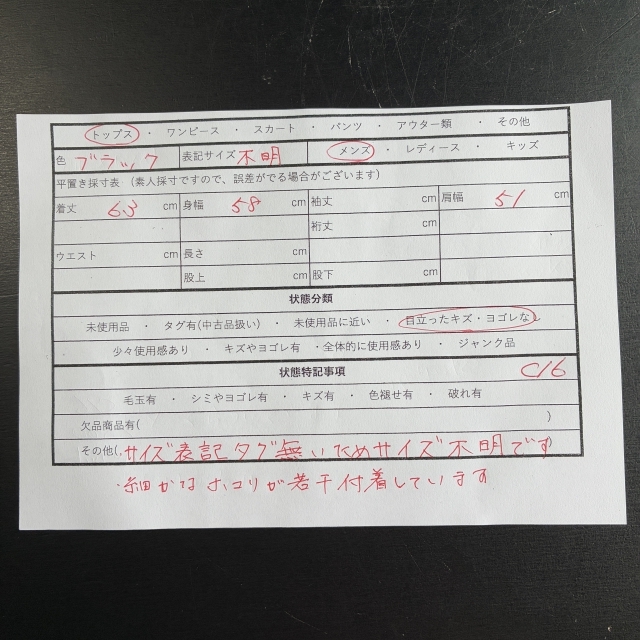 トップス ・ ワンピース ・ スカート ・ パンツ ・ アウター類 ・ その他
色 ブラック 表記サイズ 不明 メンズ ・ レディース ・ キッズ
平置き採寸表 (素人採寸ですので、誤差がでる場合がございます)
着丈 63 cm 身幅 58 cm 袖丈 cm 肩幅 51 cm
裄丈 cm
ウエスト cm 長さ cm
股上 cm 股下 cm
状態分類
未使用品 ・ タグ有(中古品扱い) ・ 未使用品に近い ・ 目立ったキズ・ヨゴレなし
少々使用感あり ・ キズやヨゴレ有 ・全体的に使用感あり ・ ジャンク品
状態特記事項 C16
毛玉有 ・ シミやヨゴレ有 ・ キズ有 ・ 色褪せ有 ・ 破れ有
欠品商品有( )
その他(.サイズ表記タグ無いためサイズ不明です)
・細かなホコリが若干付着しています